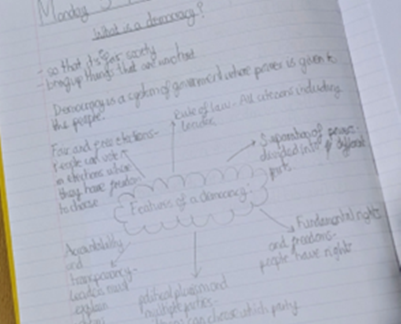 Monday
What is a democracy?
- so that it's fair society
- bring up things that are
Democracy is a system of government where power is given to
the people.
Rule of law - All citizens including
leaders
Fair and free elections-
People can vote
in elections where
they have freedom
to choose
Separation of power-
divided into different
Features of a democracy
Fundamental rights
and freedoms-
people have rights
Accountability
and
transparency-
leaders must
explain
political pluralism and
multiple parties-
can choose which party